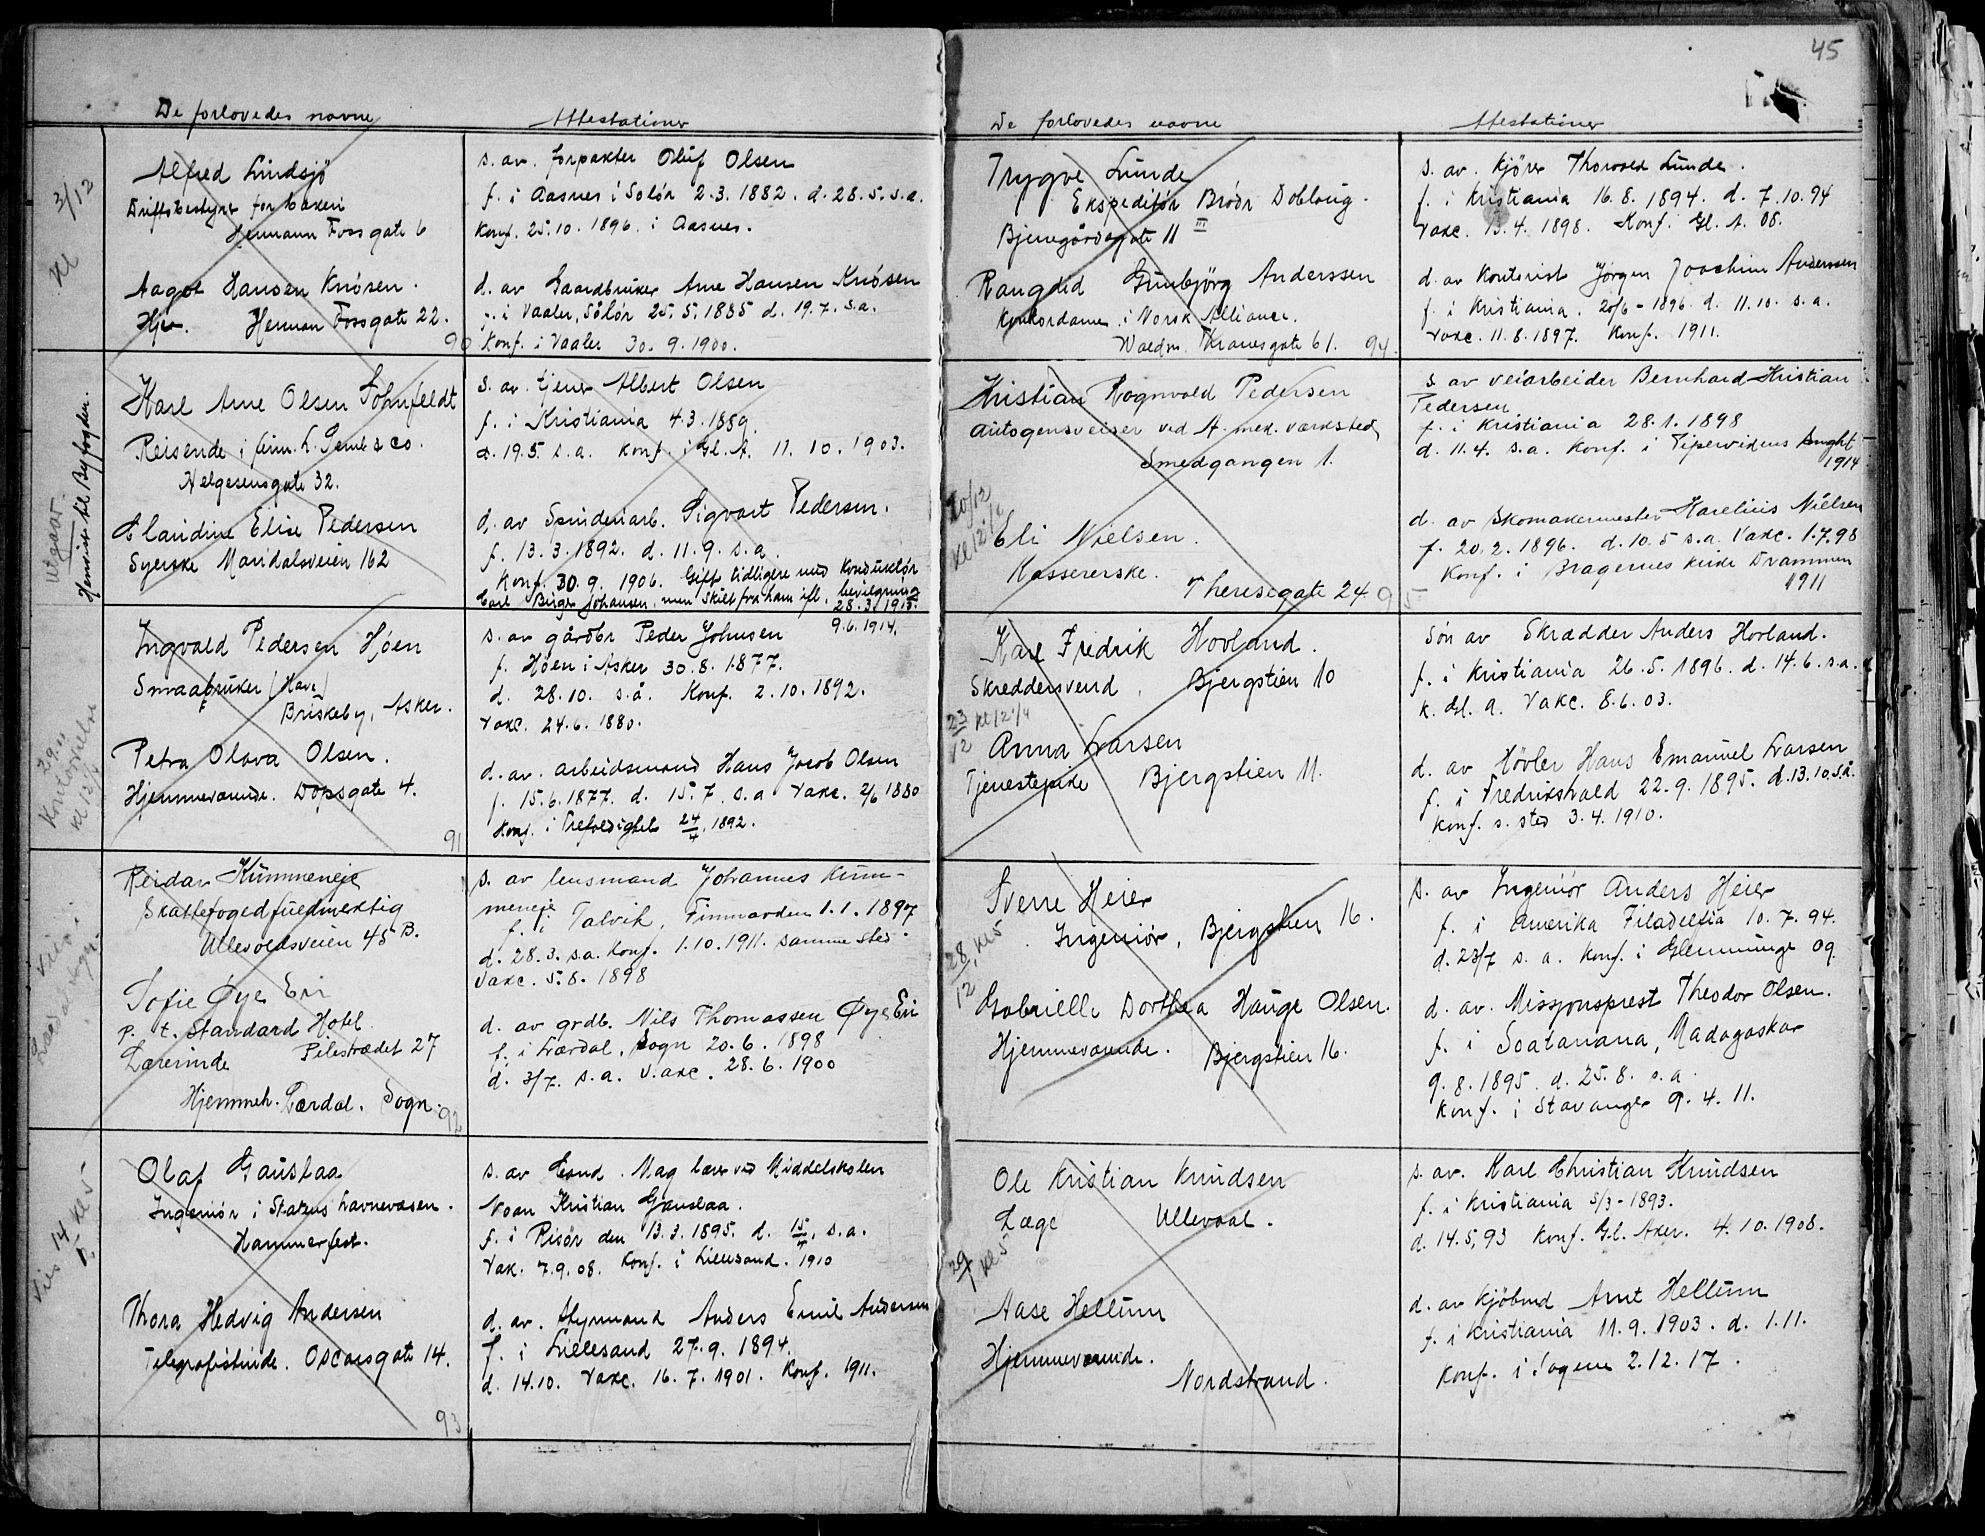 De forlovedes navne
Attestationer
3/12
Kl
Alfred Lindsjö
Driftsbestyrer for bakeri
Hermann Fossgate 6
Aagot Hansen Knösen.
Hjv. Herman Fossgate 22.
90
s. av. forpakter Oluf Olsen
f. i Aasnes i Solör 2.3.1882. d. 28.5. s.a.
Konf. 25.10.1896. i Aasnes.
d. av Gaardbruker Arne Hansen Knösen
f. i Vaaler, Sölör 25.5.1885 d. 19.7. s.a.
Konf. i Vaaler 30.9.1900.
Utgaar.
Henvist til Byfogden.
Karl Arne Olsen Sohnfeldt
Reisende i firm. L. & co.
Helgesensgate 32.
Claudine Elise Pedersen
Syerske Maridalsveien 162
s. av tjener Albert Olsen
f. i Kristiania 4.3.1889.
d. 19.5. s.a. Konf. i Gl. A. 11.10.1903.
d. av Spinderiarb. Sigvart Pedersen.
f. 13.3.1892. d. 11.9. s.a.
Konf. 30.9.1906. Gift tidligere med Konduktör
Carl Birger Johansen, men skilt fra ham ifl. bevilgning
28.3.1913.
9.6.1914.
29.11
Kl 13
Ingvald Pedersen Höen
Smaabruker (Have)
Briskeby, Asker.
Petra Olava Olsen.
Hjemmeværende. Dopsgate 4.
91
s. av gårdbr Peder Johnsen
f. Höen i Asker 30.8.1877.
d. 28.10. s.å. Konf. 2.10.1892.
Vakc. 24.6.1880.
d. av. arbeidsmand Hans Jacob Olsen
f. 15.6.1877. d. 15.7. s.a Vakc. 2/6 1880
Konf. i Trefoldighet 24/4. 1892.
Vies i
Reidar Kummeneje
Skattefogedfuldmektig
Ullevoldsveien 45 B.
Sofie Øye Eri
p. t. Standard Hotel.
Lærerinde Pilestrædet 27
Hjemmeh. Lærdal. Sogn.
92
s. av lensmand Johannes Kum-
meneje
f. i Talvik, Finmarken 1.1.1897
d. 28.3. s.a. Konf. 1.10.1911. samme sted.
Vakc. 5.8.1898
d. av grdb. Nils Thomassen Øye Eri
f. i Lærdal, Sogn 20.6.1898
d. 3/7. s.a. Vakc. 28.6.1900
Vies 14 Kl 5
Olaf Gauslaa
Ingeniör i Statens havnevæsen.
Hammerfest.
Thora Hedvig Andersen
Telegrafistinde. Oscarsgate 14.
93
s. av Cand. Mag lærer ved Middelskolen
Kristian Gauslaa.
f. i Risör den 13.3.1895. d. 15/4. s.a.
Vak. 7.9.08. Konf. i Lillesand. 1910
d. av. Styrmand Anders Emil Andersen
f. i Lillesand 27.9.1894.
d. 14.10. Vakc. 16.7.1901. Konf. 1911.
45
De forlovedes navne
Attestationer
Trygve Lunde
Ekspeditör Brödr Dobloug.
Bjerregårdsgate 11 III
Rangdid Gunbjörg Anderssen
Kontordame i Norsk Alliance.
Waldm. Thranesgate 61. 94
s. av. Kjörer Thorvald Lunde.
f. i Kristiania 16.8.1894. d. 7.10.94
Vakc. 13.4.1898. Konf. Gl. A. 08.
d. av Kontorist Jörgen Joachim Anderssen
f. i Kristiania. 20/6 - 1896. d. 11.10. s.a.
Vakc. 11.8.1897. Konf. 1911.
Kristian Rognvald Pedersen
autogensveiser ved A. mek. værksted,
Smedgangen 1.
20/12
Kl 12 1/2
Eli Nielsen.
Kassererske.
Theresegate 24 95
s. av veiarbeider Bernhard Kristian
Pedersen
f. i Kristiania 28.1.1898
d. 11.4. s.a. Konf. i Tipervikens
1914
d. av Skomakermester Harelius Nielsen
f. 20.2.1896. d. 10.5 s.a. Vakc. 1.7.98
Konf. i Bragernes Kirke Drammen
1911
Karl Fredrik Hovland.
Skreddersvend, Bjergstien 10
23/12 Kl 12 1/4
Anna Larsen
Tjenestepike Bjergstien 11.
Sön av Skrædder Anders Hovland.
f. i Kristiania 26.5.1896. d. 14.6. s.a.
K. Gl. A. Vakc. 8.6.03.
d. av Hövler Hans Emanuel Larsen
f. i Fredrikshald 22.9.1895. d. 13.10. s.å.
Konf. s. sted 3.4.1910.
28/12, Kl 5
Sverre Heier
Ingeniör, Bjergstien 16.
Gabrielle Dorthea Hauge Olsen.
Hjemmeværende. Bjergstien 16.
s. av Ingeniör Anders Heier
f. i Amerika Filadelfia 10.7.94.
d. 23/7 s.a. Konf. i Glemminge 09.
d. av. Missjonsprest Theodor Olsen.
f. i Soatanana, Madagaskar
9.8.1895. d. 25.8. s.a.
Konf. i Stavanger 9.4.11.
Ole Kristian Knudsen
Læge Ullevaal.
29/ Kl 5
Aase Hellum
Hjemmeværende.
Nordstrand.
s. av. Karl Christian Knudsen
f. i Kristiania 5/3 - 1893.
d. 14.5.93 Konf. Gl. Aker. 4.10.1908.
d. av Kjöbmd Arnt Hellum
f. i Kristiania 11.9.1903. d. 1.11.
Konf. i Sagene 2.12.17.